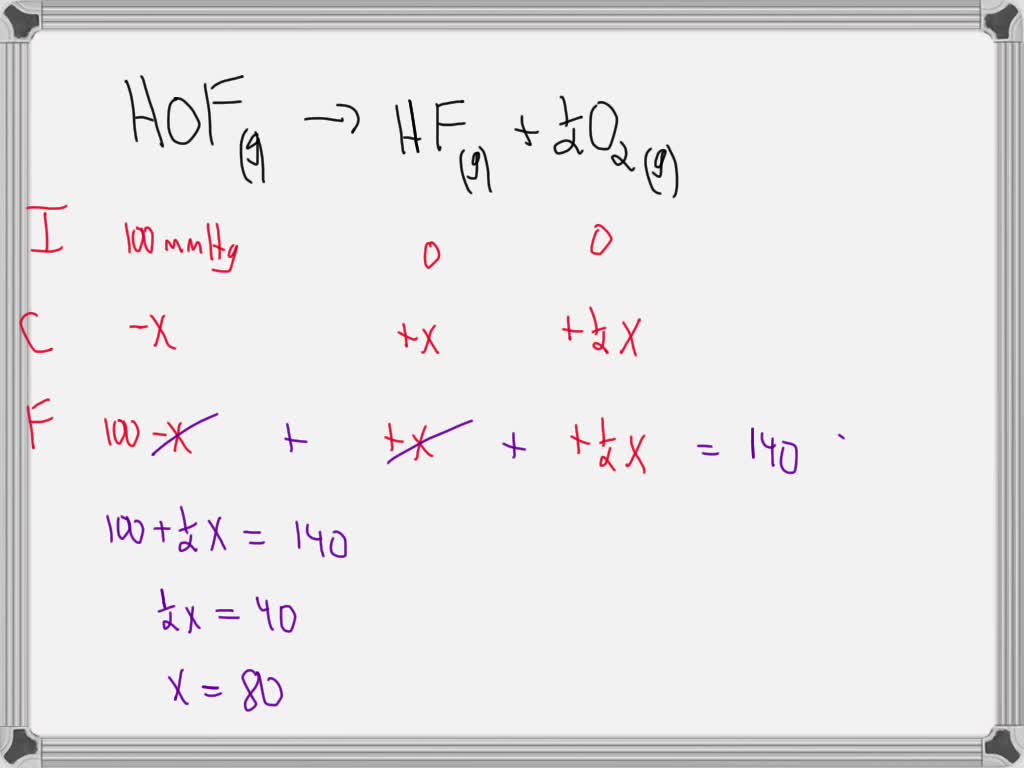 HOF(g) → HF(g) + ½O₂(g)
I 100 mmHg 0 0
C -x +x +½x
F 100 -x + +x + +½x = 140
100 + ½x = 140
½x = 40
x = 80